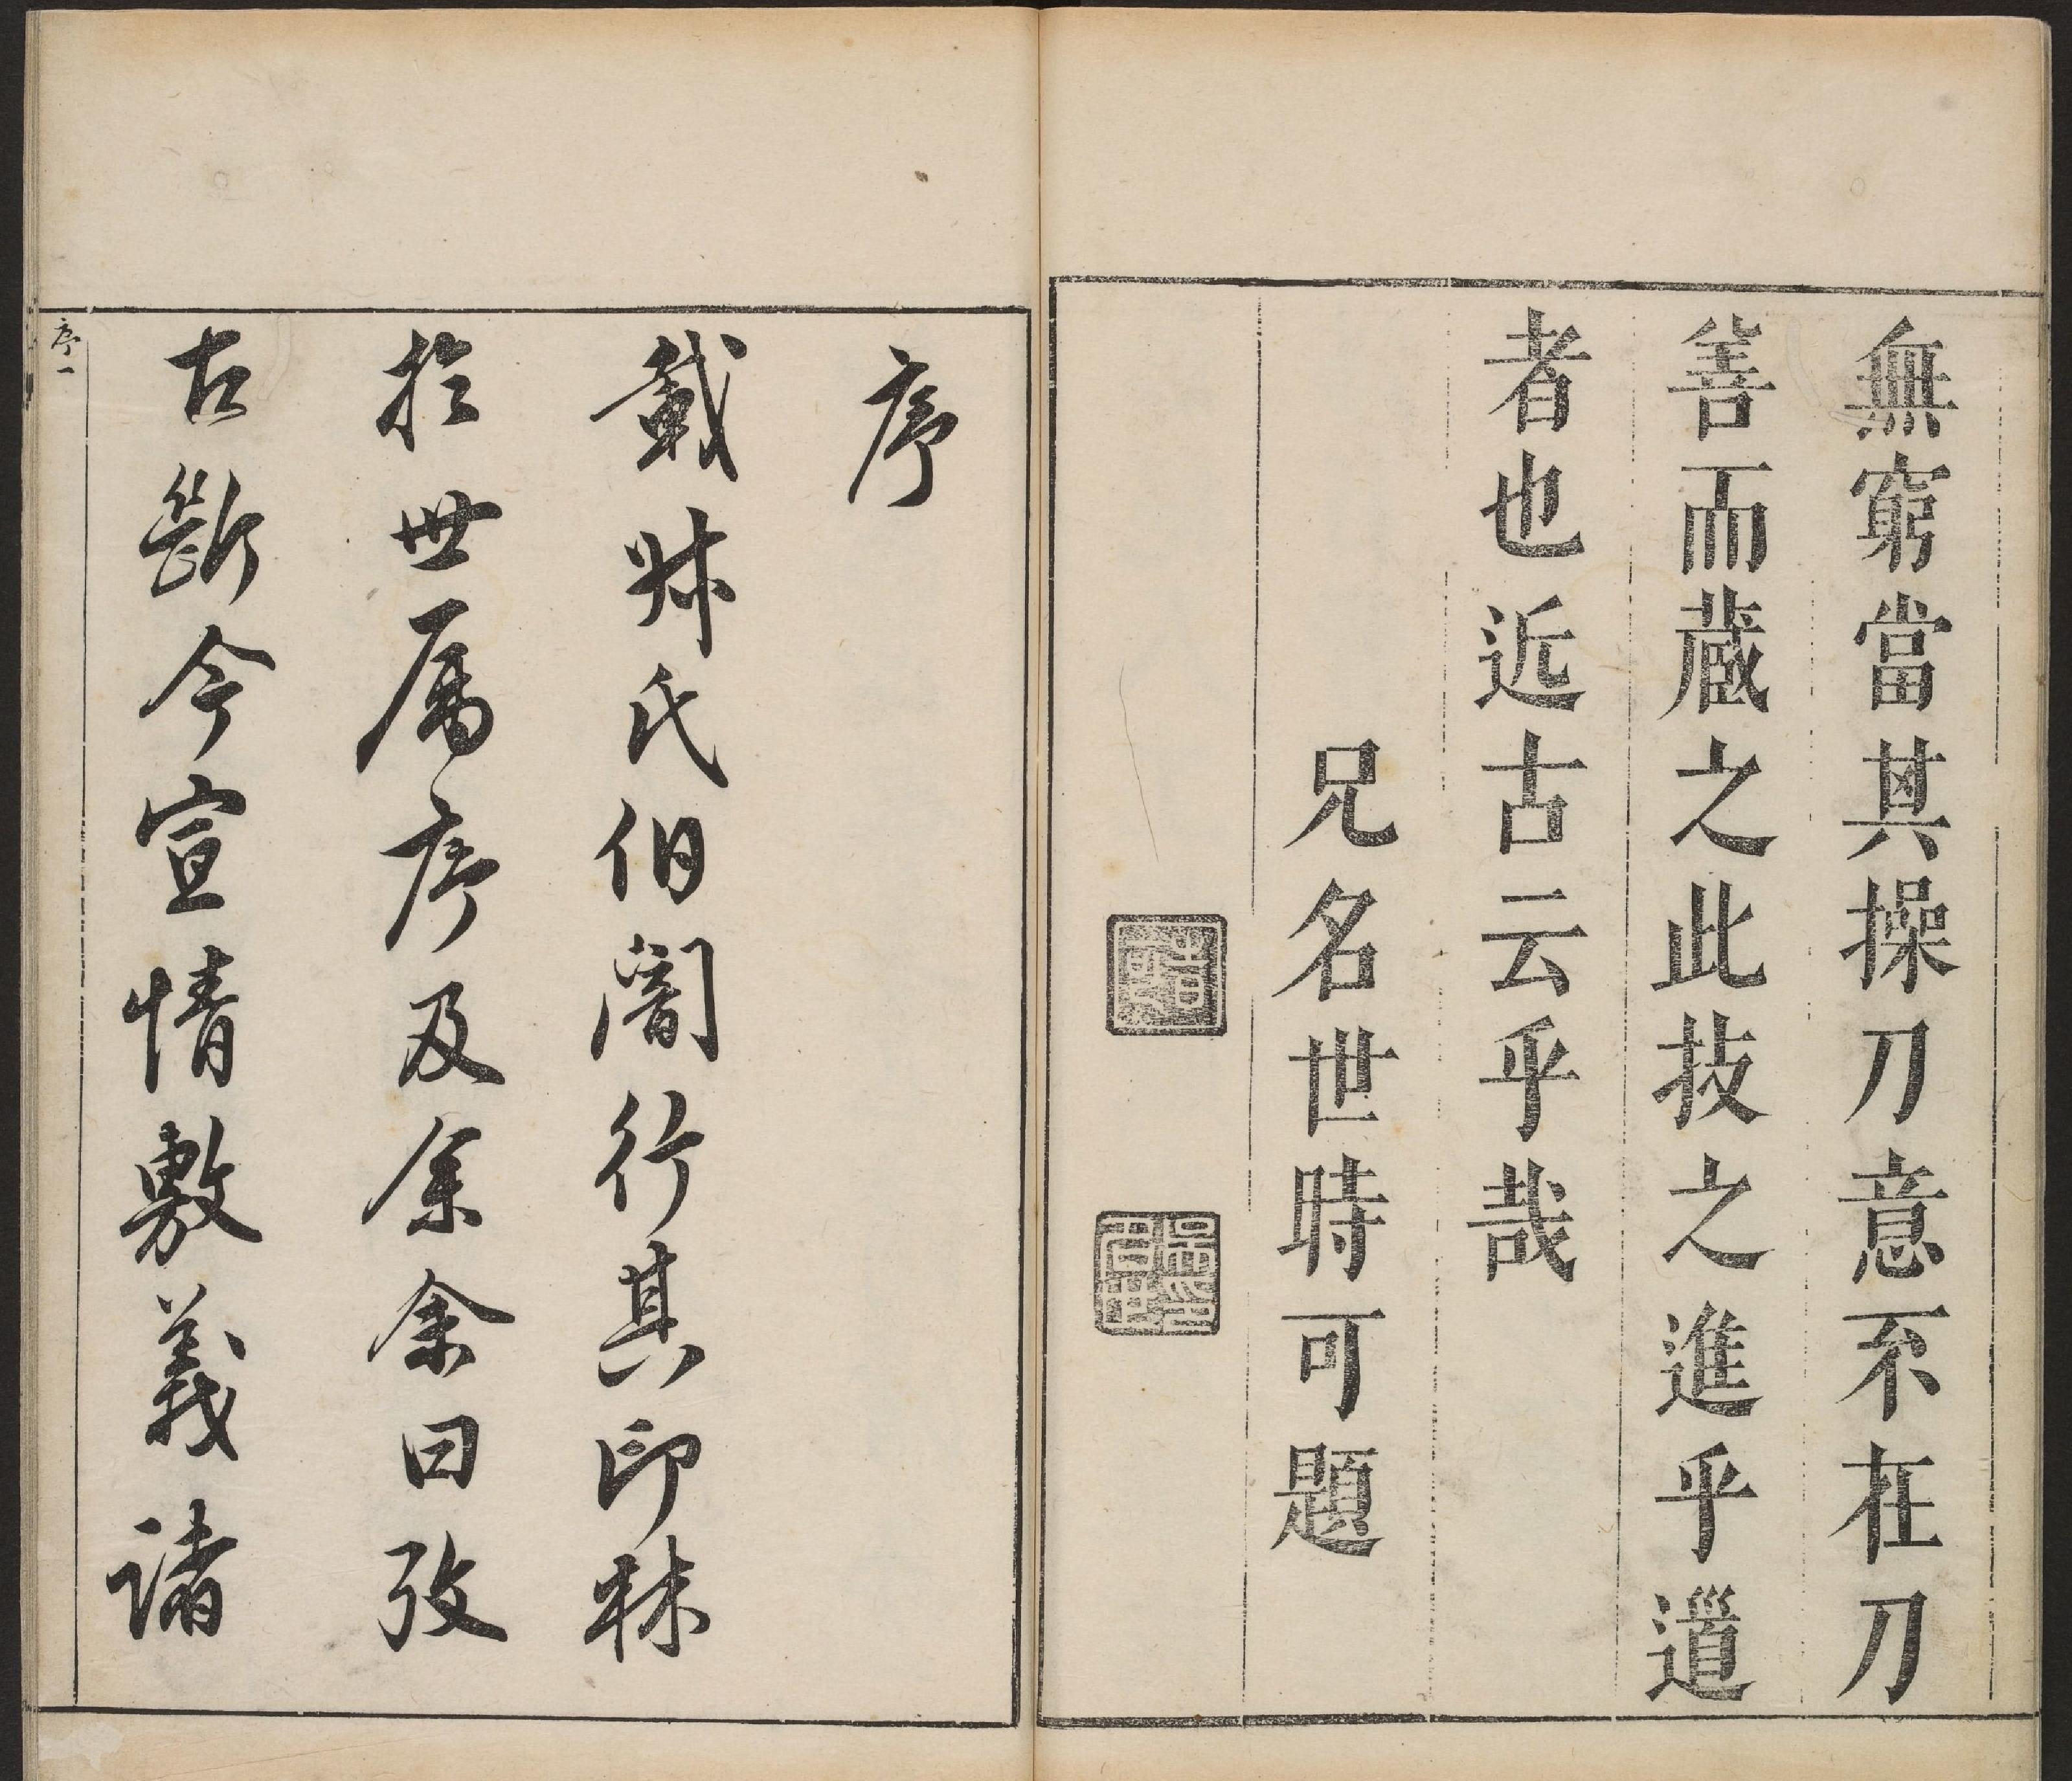 無窮當其操刀意不在刀
善而藏之此技之進乎道
者也近古云乎哉
兄名世時可題
序
載叔氏伯闇行其印林
於世屬序及余余曰攷
古斷今宣情敷義諸
序一